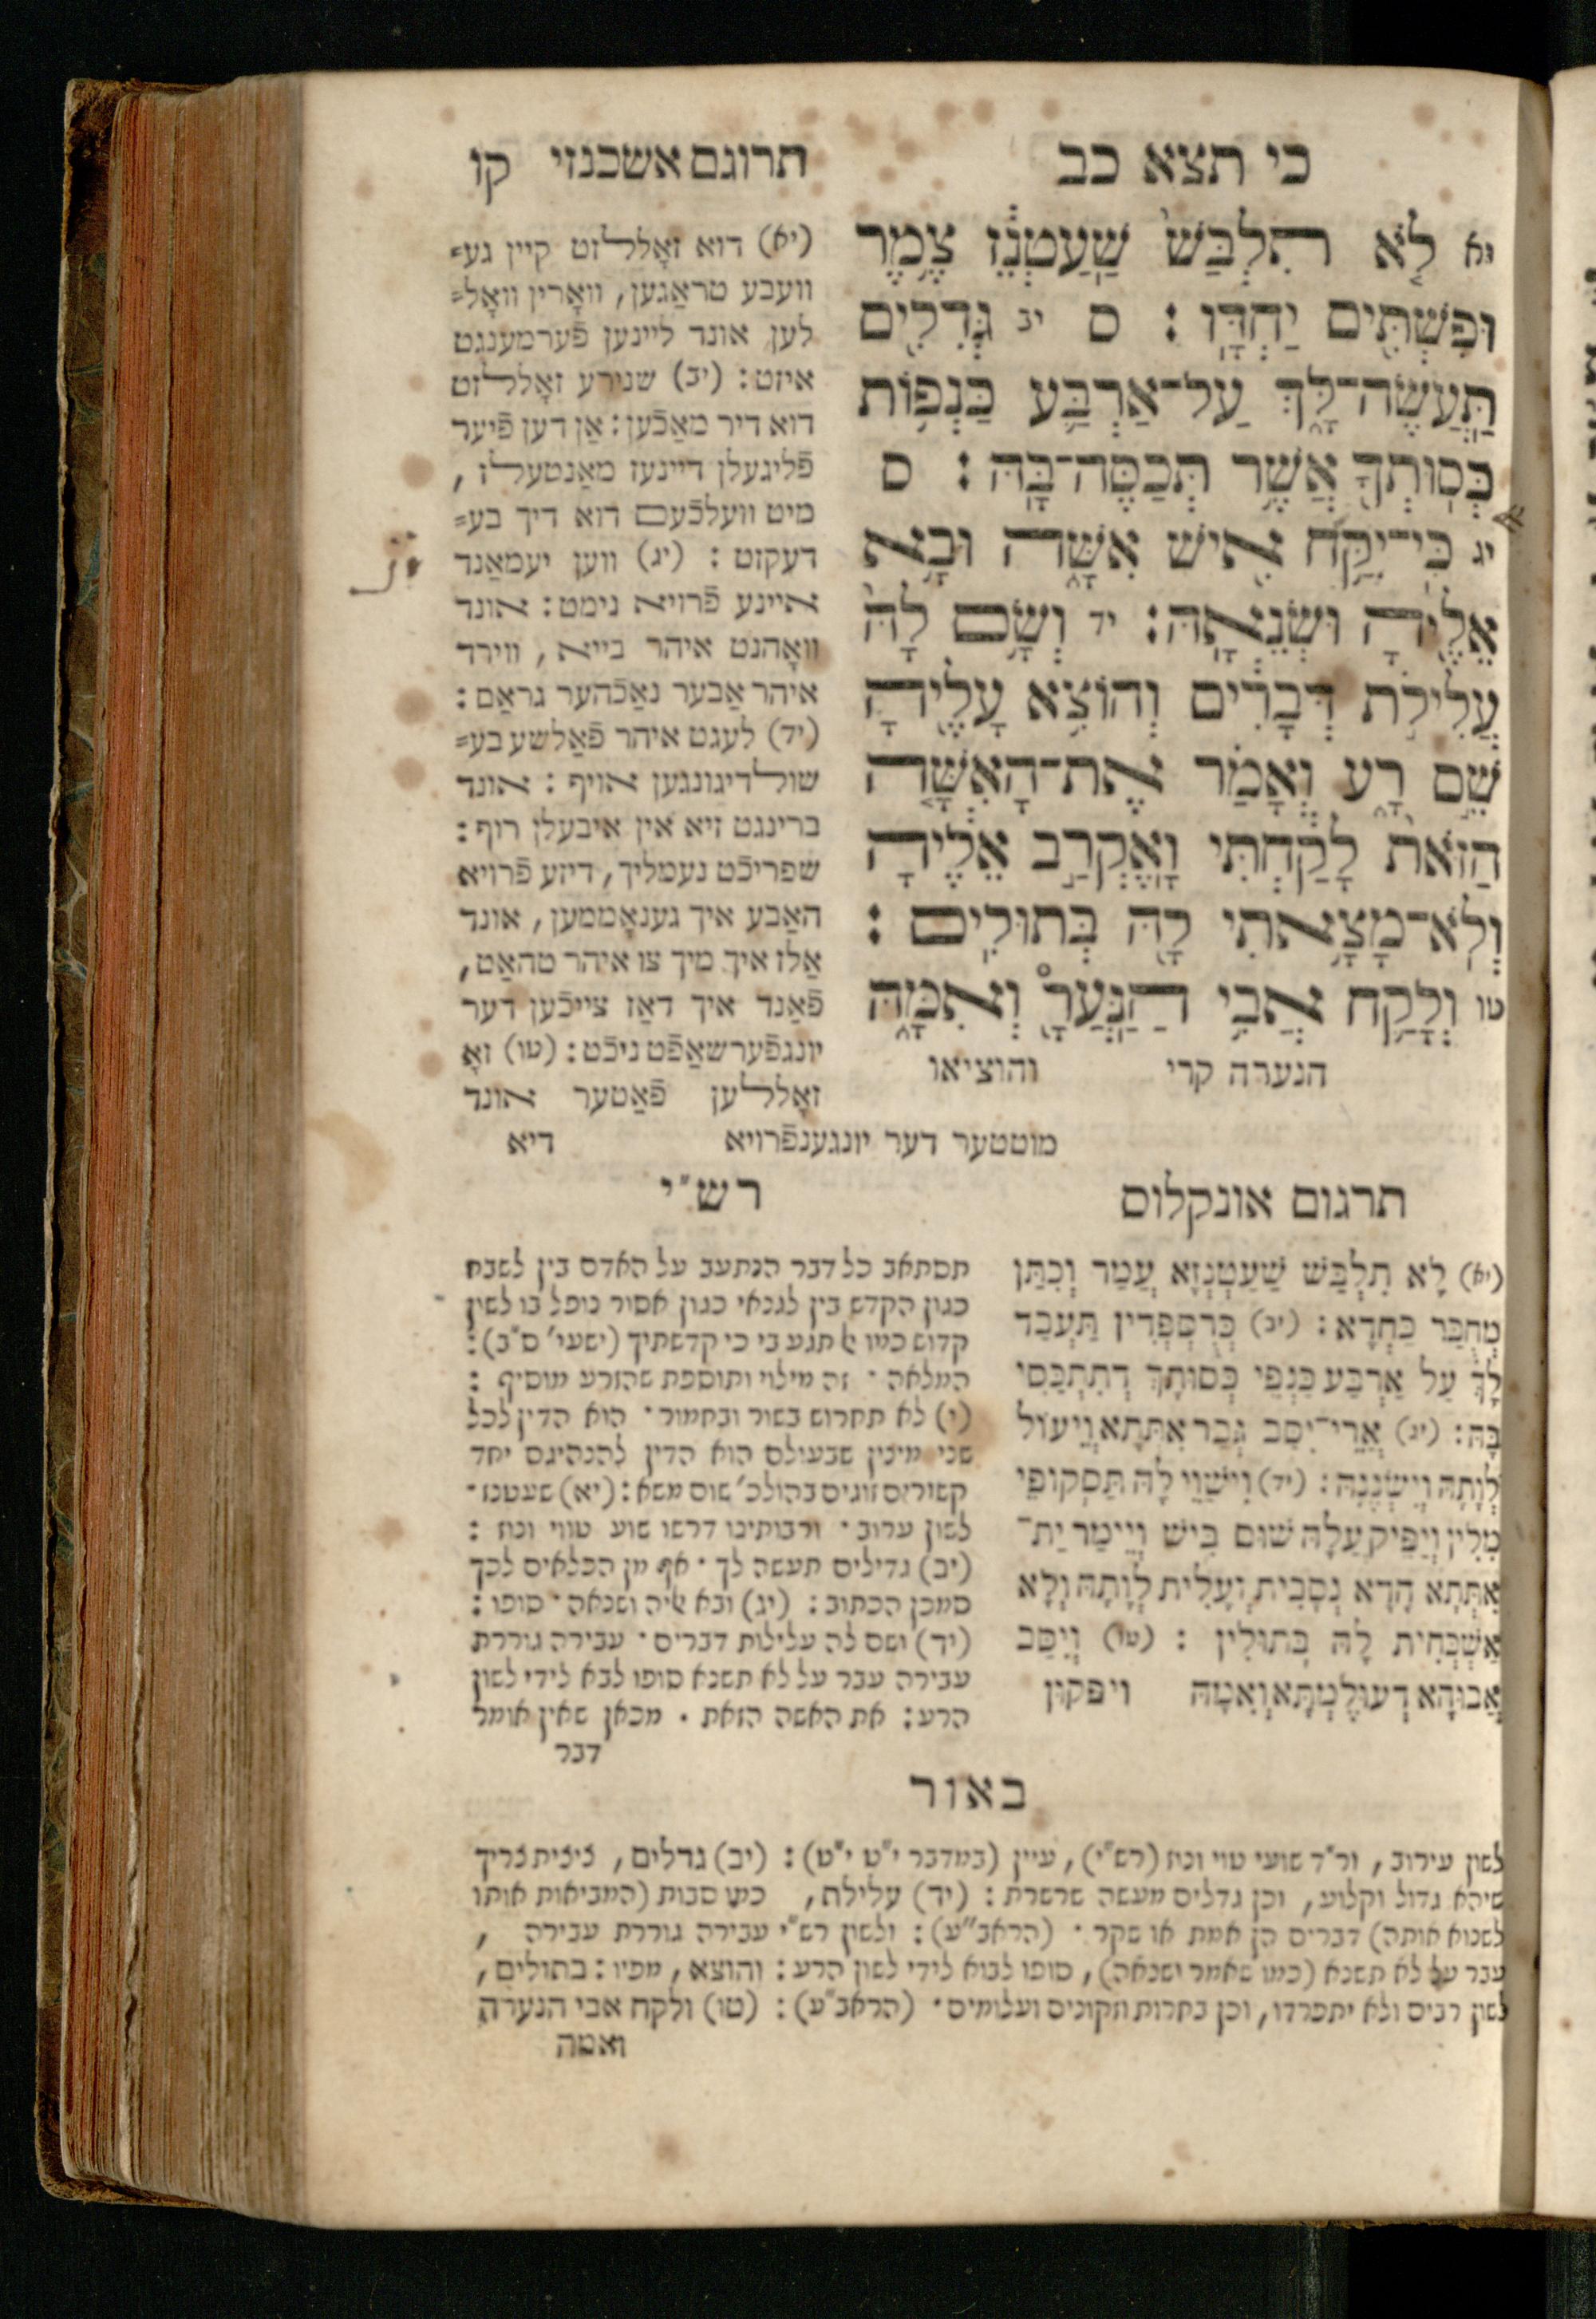 כי תצא כב
תרוגם אשכנזי קו
יא לֹ֤א תִלְבַּשׁ֙ שַֽׁעַטְנֵ֔ז צֶ֥מֶר
וּפִשְׁתִּ֖ים יַחְדָּֽו׃ ס יב גְּדִלִ֖ים
תַּֽעֲשֶׂה־לָּ֑ךְ עַל־אַרְבַּ֛ע כַּנְפ֥וֹת
כְּסֽוּתְךָ֖ אֲשֶׁ֥ר תְּכַסֶּה־בָּֽהּ׃ ס
יג כִּֽי־יִקַּ֥ח אִ֖ישׁ אִשָּׁ֑ה וּבָ֥א
אֵלֶ֖יהָ וּשְׂנֵאָֽהּ׃ יד וְשָׂ֥ם לָהּ֙
עֲלִילֹ֣ת דְּבָרִ֔ים וְהוֹצִ֥א עָלֶ֖יהָ
שֵׁ֣ם רָ֑ע וְאָמַ֗ר אֶת־הָֽאִשָּׁ֤ה
הַזֹּאת֙ לָקַ֔חְתִּי וָֽאֶקְרַ֣ב אֵלֶ֔יהָ
וְלֹֽא־מָצָ֥אתִי לָ֖הּ בְּתוּלִֽים׃
טו וְלָקַ֛ח אֲבִ֥י הַֽנַּעֲרָ֖ וְאִמָּ֑הּ
הנערה קרי והוציאו
(יא) דוא זאָללזט קיין גע=
וועבע טראַגען, וואָרין וואָל=
לען אונד ליינען פֿערמענגט
איזט: (יב) שנירע זאָללזט
דוא דיר מאַכֿען: אַן דען פֿיער
פֿליגעלן דיינעז מאַנטעלז,
מיט וועלכֿעם דוא דיך בע=
דעקזט: (יג) ווען יעמאַנד
איינע פֿרויא נימט: אונד
וואָהנט איהר בייא, ווירד
איהר אַבער נאַכֿהער גראַם:
(יד) לעגט איהר פֿאַלשע בע=
שולדיגונגען אויף: אונד
ברינגט זיא אין איבעלן רוף:
שפריכֿט נעמליך, דיזע פֿרויא
האַבע איך גענאָממען, אונד
אַלז איך מיך צו איהר טהאַט,
פֿאַנד איך דאַז צייכֿען דער
יונגפֿערשאַפֿט ניכֿט: (טו) זאָ
זאָללען פֿאַטער אונד
מוטטער דער יונגענפֿרויא דיא
תרגום אונקלוס
(יא) לָא תִלְבַּשׁ שַׁעַטְנְזָא עֲמַר וְכִתַּן
מְחֻבַּר כַּחְדָא: (יב) כְּרֻסְפְּדִין תַּעְבֵּד
לָךְ עַל אַרְבַּע כַּנְפֵי כְּסוּתָךְ דְתִתְכַּסֵי
בָּהּ: (יג) אֲרֵי־יִסַּב גְּבַר אִתְּתָא וְיֵעוֹל
לְוָתָהּ וְיִשְׂנֵנָהּ: (יד) וִישַׁוֵי לָהּ תַּסְקוּפֵי
מִלִּין וְיַפֵּיק עֲלָהּ שׁוּם בִּישׁ וְיֵימַר יַת־
אִתְּתָא הָדָא נְסָבִית וְעָלִית לְוָתָהּ וְלָא
אַשְׁכָּחִית לָהּ בְּתוּלִין: (טו) וְיִסַּב
אֲבוּהָא דְעוּלֶמְתָּא וְאִמַּהּ ויפקון
רש"י
תסתאב כל דבר הנתעב על האדם בין לשבח
כגון הקדש בין לגנאי כגון אסור נופל בו לשון
קדוש כמו אל תגע בי כי קדשתיך (ישעי' ס"ב):
המלאה· זה מילוי ותוספת שהזרע מוסיף:
(י) לא תחרוש בשור ובחמור· הוא הדין לכל
שני מינין שבעולם הוא הדין להנהיגם יחד
קשורים זוגים בהולכ' שום משא: (יא) שעטנז·
לשון ערוב· ורבותינו דרשו שוע טווי ונוז:
(יב) גדילים תעשה לך· אף מן הכלאים לכך
סמכן הכתוב: (יג) ובא אליה ושנאה· סופו:
(יד) ושם לה עלילות דברים· עבירה גוררת
עבירה עבר על לא תשנא סופו לבא לידי לשון
הרע: את האשה הזאת. מכאן שאין אומר
דבר
באור
לשון עירוב, ור"ד שועי טוי ונוז (רש"י), עיין (במדבר י"ט י"ט): (יב) גדלים, ציצית צריך
שיהא גדול וקלוע, וכן גדלים מעשה שרשרת: (יד) עלילת, כמו סבות (המביאות אותו
לשנוא אותה) דברים הן אמת או שקר· (הראב"ע): ולשון רש"י עבירה גוררת עבירה,
עבר על לא תשנא (כמו שאמר ושנאה), סופו לבוא לידי לשון הרע: והוצא, מפיו: בתולים,
לשון רבים ולא יתפרדו, וכן בחרות וזקונים ועלומים· (הראב"ע): (טו) ולקח אבי הנערה
ואמה